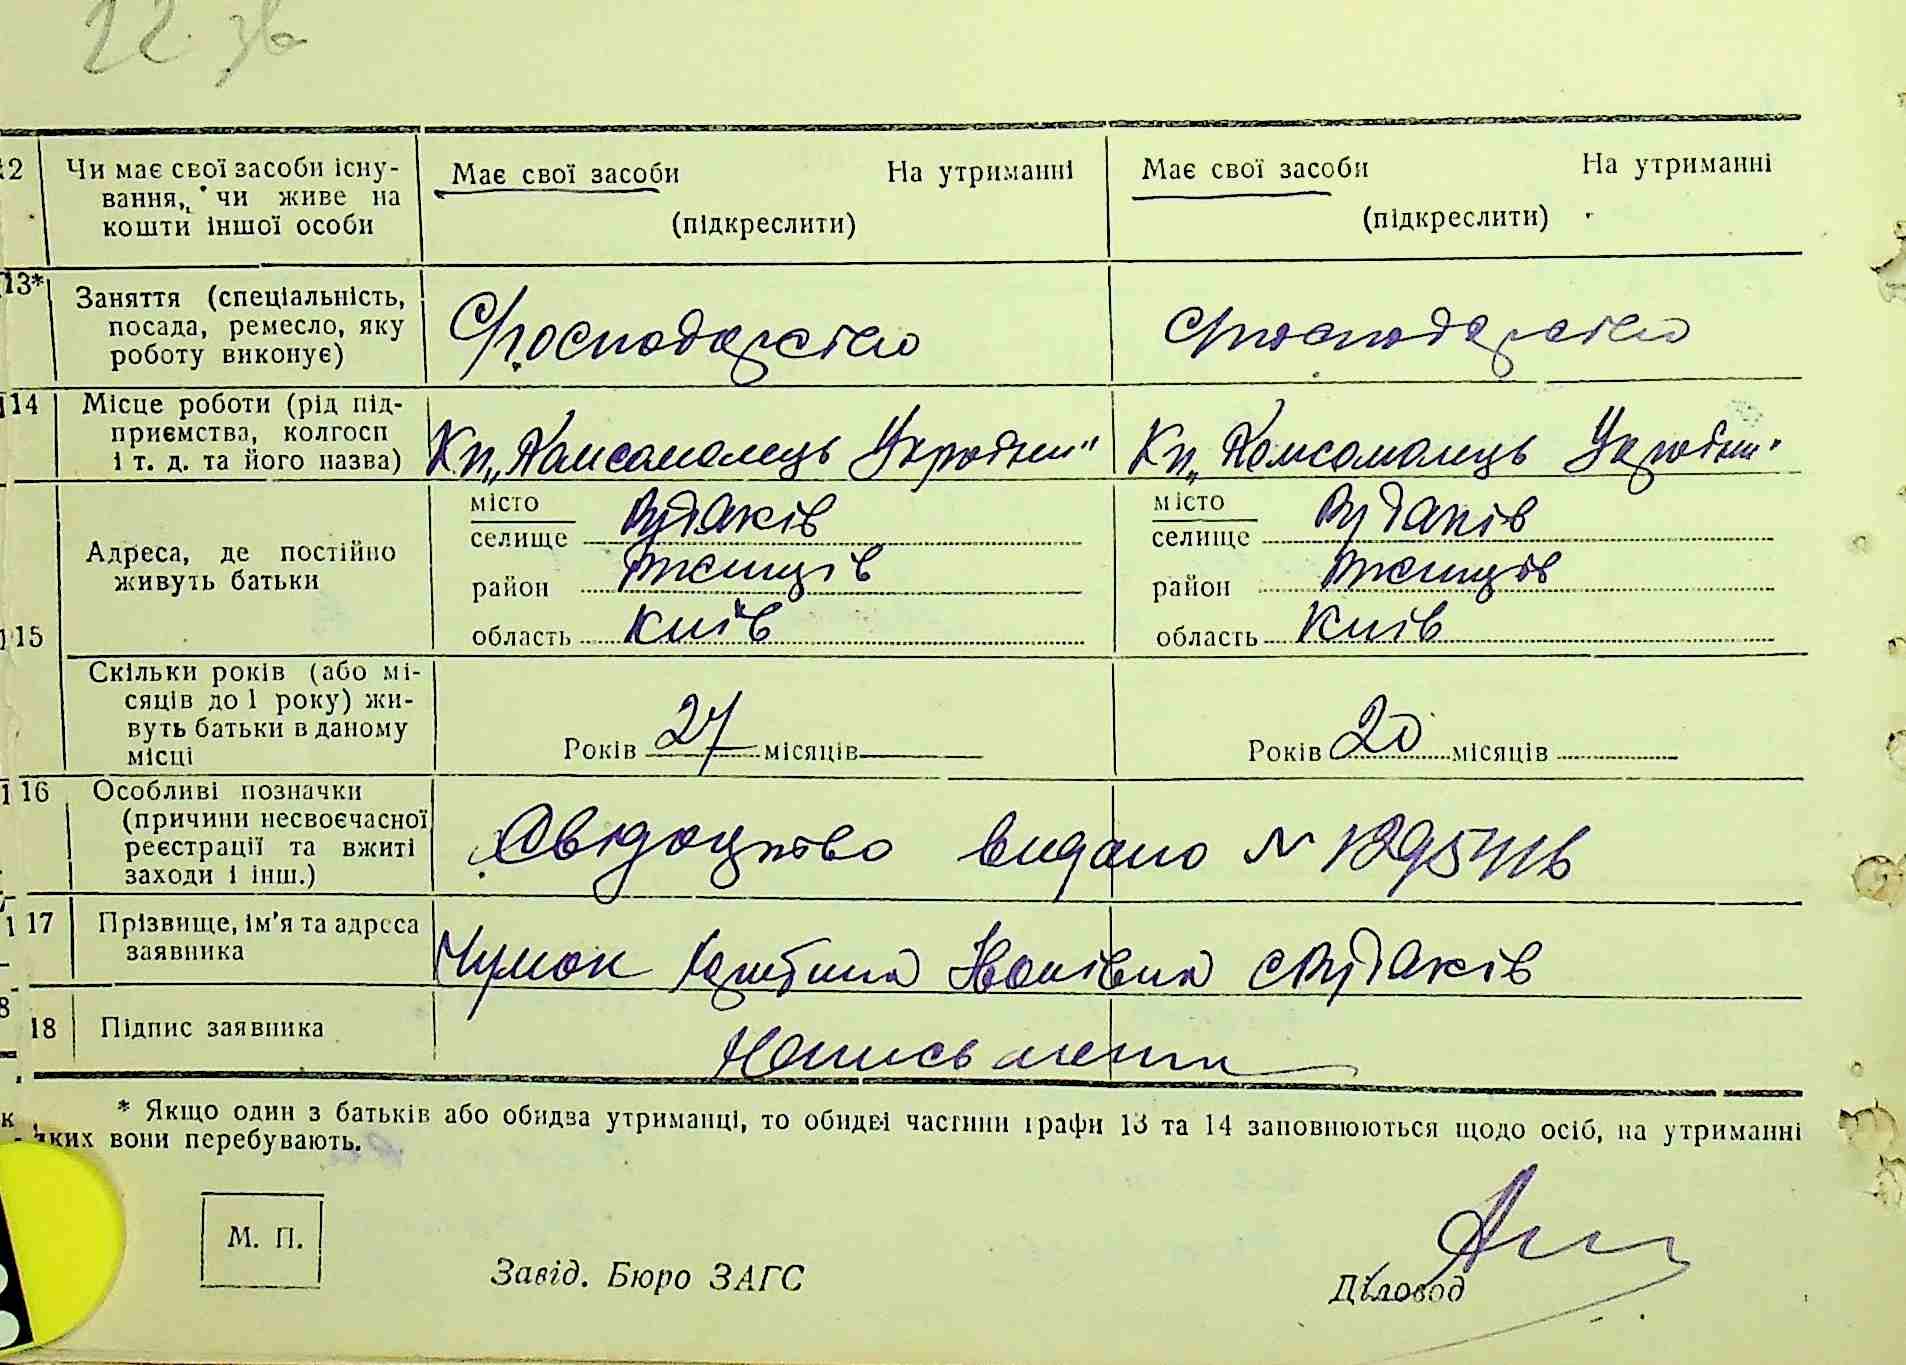 22. зв
12 Чи має свої засоби існу-
вання, чи живе на
кошти іншої особи
Має свої засоби На утриманні
(підкреслити)
Має свої засоби На утриманні
(підкреслити)
13* Заняття (спеціальність,
посада, ремесло, яку
роботу виконує)
Господарство
Господарство
14 Місце роботи (рід під-
приємства, колгосп
і т. д. та його назва)
Кп „Комсомолець України"
Кп „Комсомолець України"
15 Адреса, де постійно
живуть батьки
місто
селище Рудаків
район Ржищів
область Київ
місто
селище Рудаків
район Ржищів
область Київ
Скільки років (або мі-
сяців до 1 року) жи-
вуть батьки в даному
місці
Років 27 місяців
Років 20 місяців
16 Особливі позначки
(причини несвоєчасної
реєстрації та вжиті
заходи і інш.)
Свідоцтво видано №
17 Прізвище, ім'я та адреса
заявника
Чумак Іванівна с Рудаків
18 Підпис заявника
* Якщо один з батьків або обидва утриманці, то обидві частини графи 13 та 14 заповнюються щодо осіб, на утриманні
яких вони перебувають.
М. П.
Завід. Бюро ЗАГС
Діловод